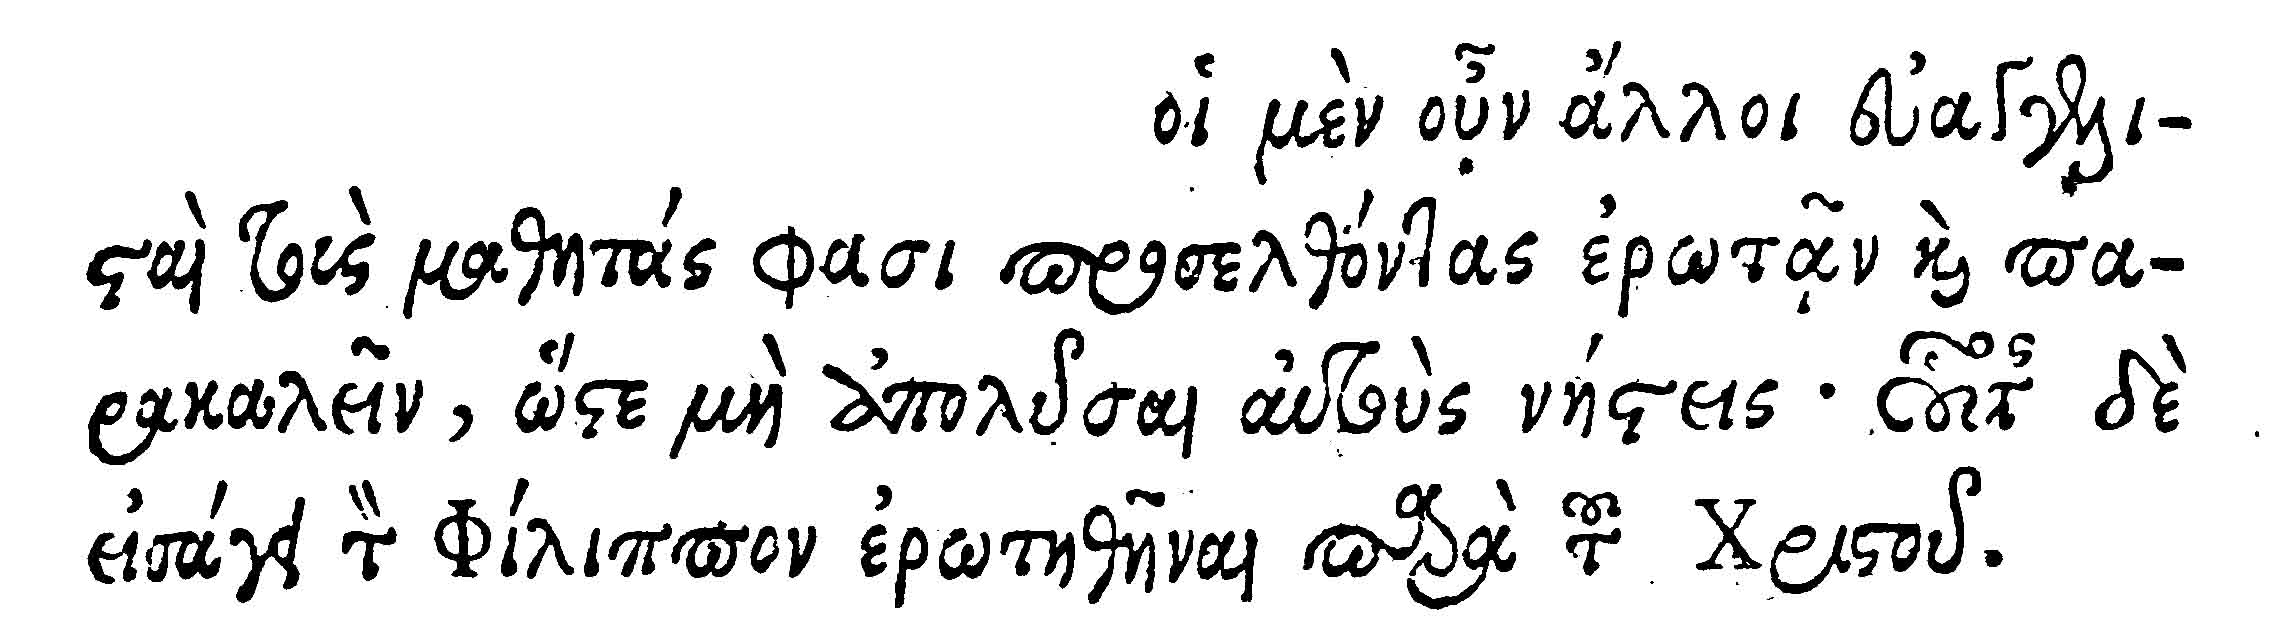 οἱ μὲν οὖν ἄλλοι εὐαγγελι-
σταὶ τοὺς μαθητάς φασι προσελθόντας ἐρωτᾶν καὶ πα-
ρακαλεῖν, ὥστε μὴ ἀπολῦσαι αὐτοὺς νήστεις· οὗτος δὲ
εἰσάγει τὸν Φίλιππον ἐρωτηθῆναι παρὰ τοῦ Χριστοῦ.